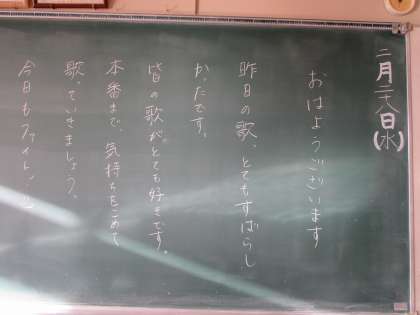 二月二十八日(水)
おはようございます
昨日の歌、とてもすばらし
かったです。
皆の歌が、とても好きです。
本番まで、気持ちをこめて
歌っていきましょう。
今日もファイト!!